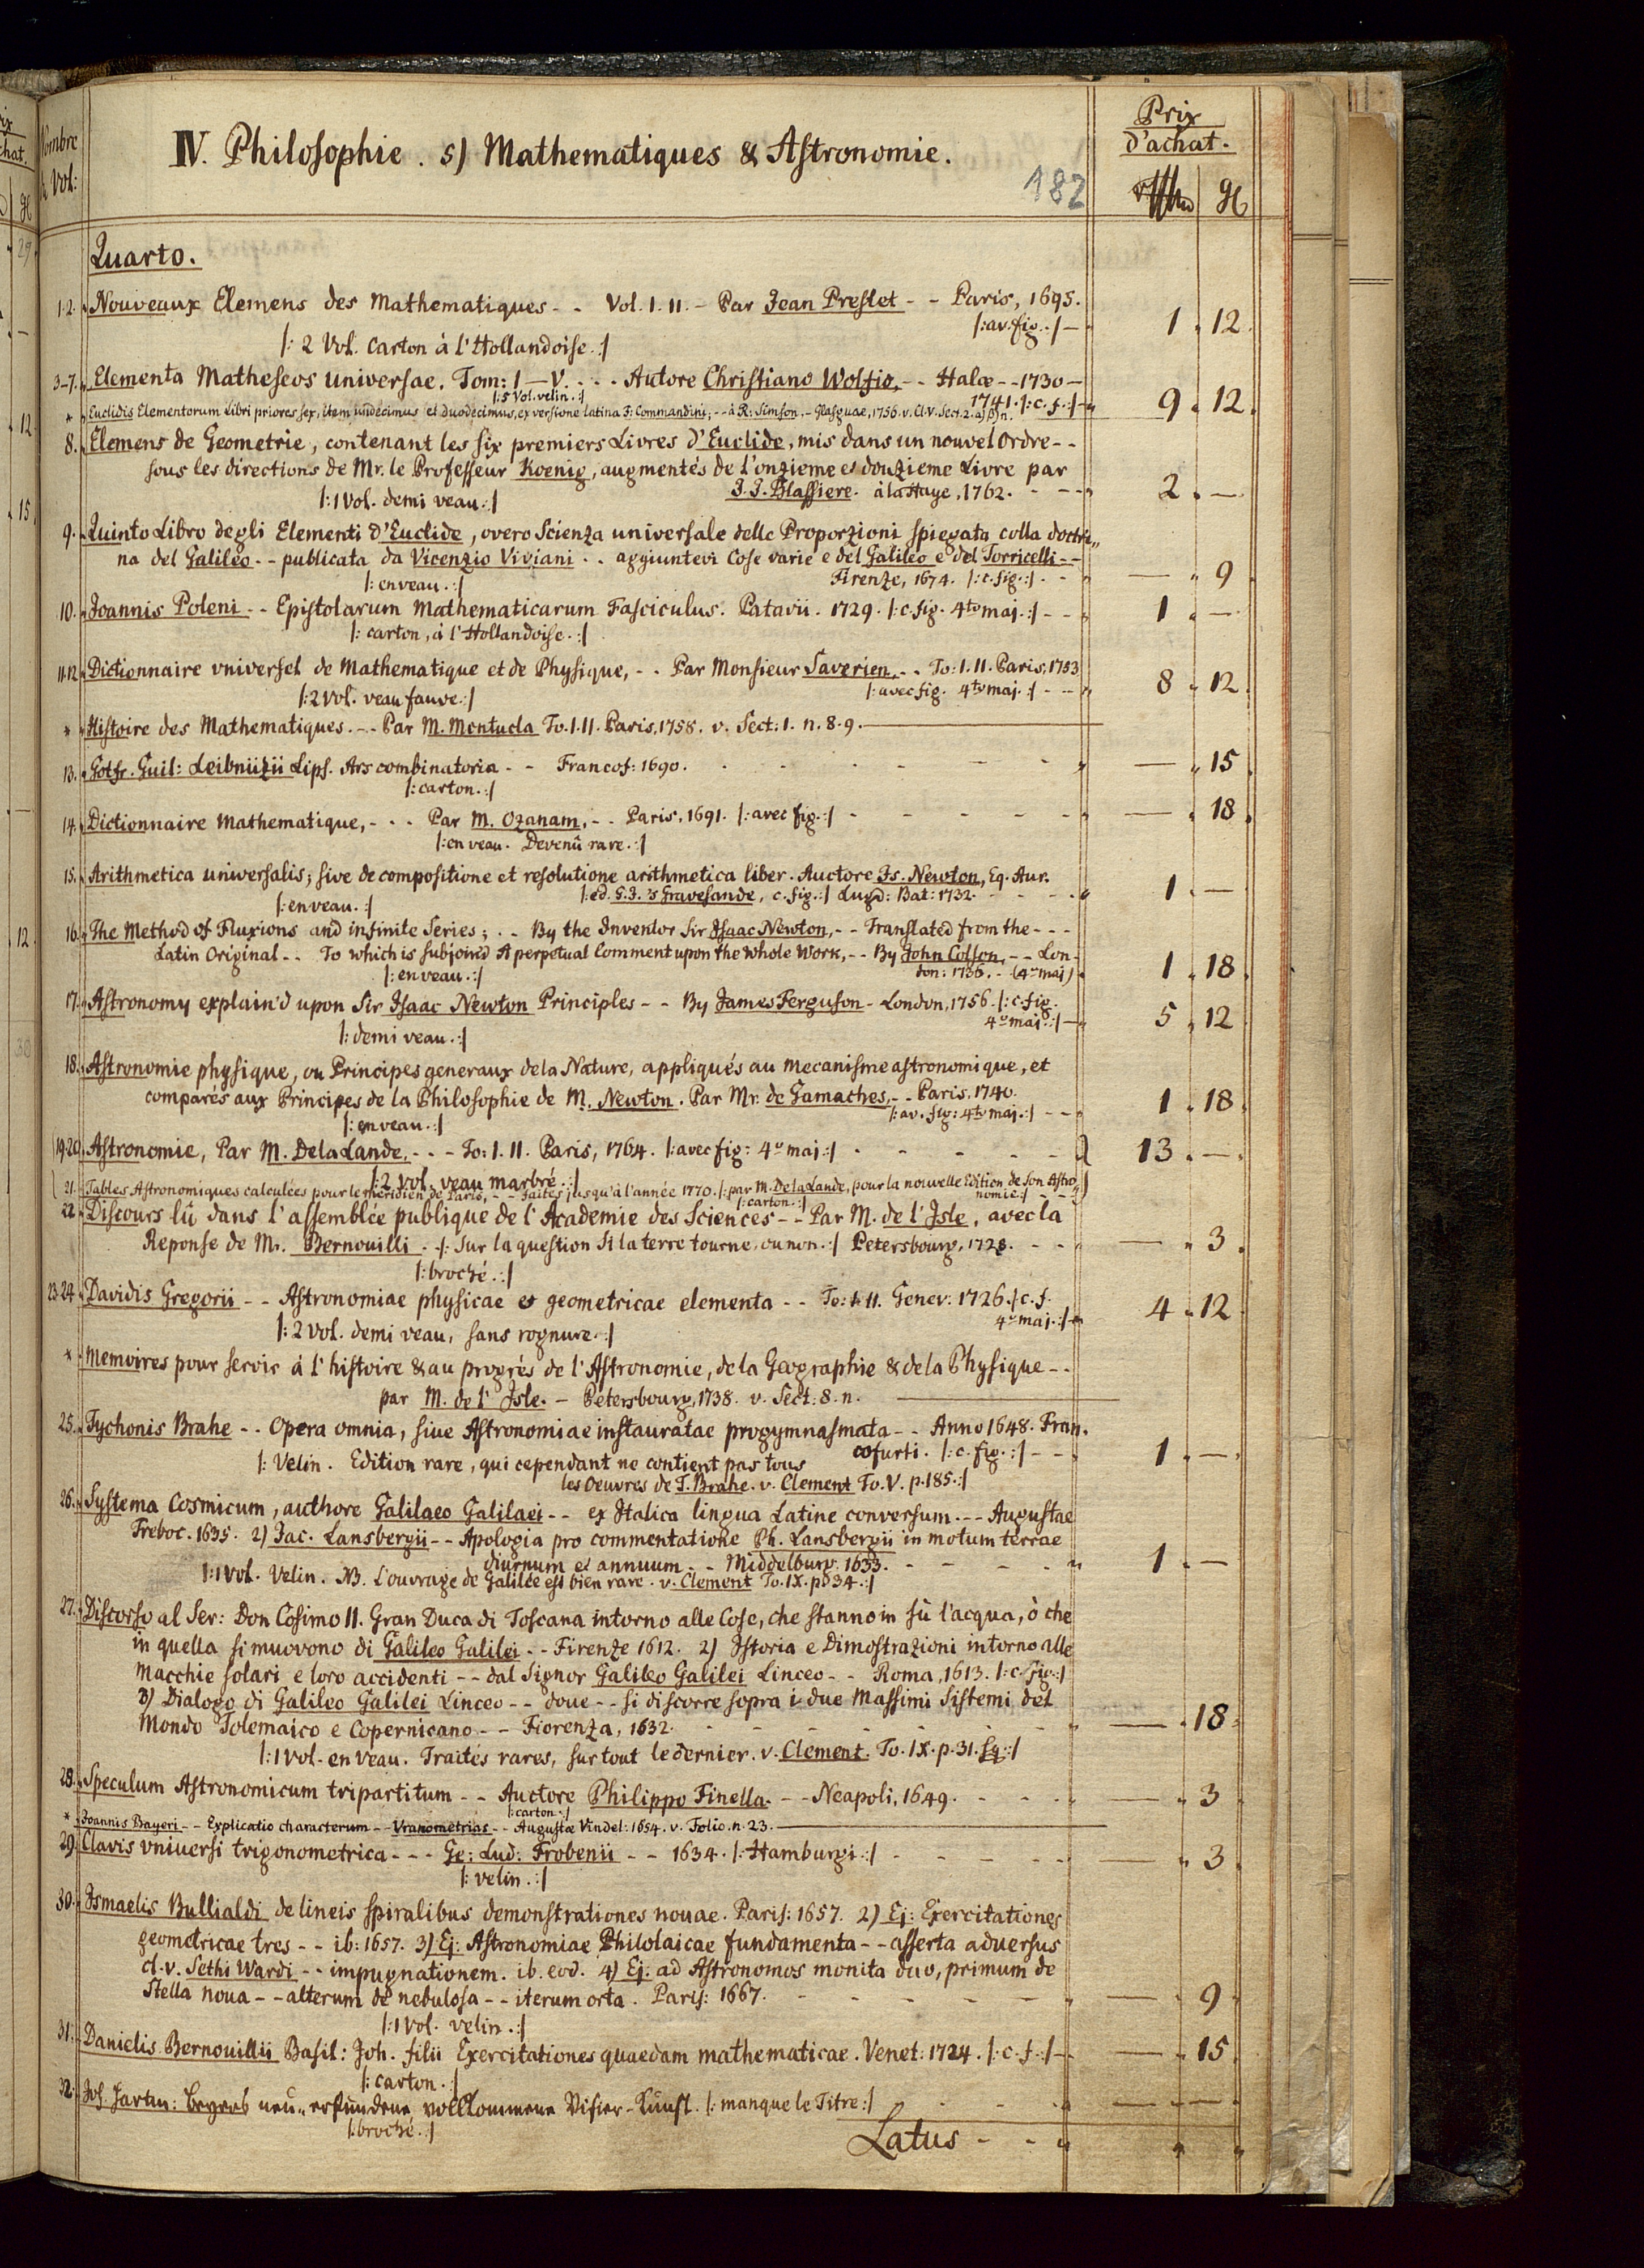 Prix
d'achat.
Nombre
Vol:
IV. Philosophie. 5) Mathematiques & Astronomie.
182
Quarto.
1.2. Nouveaux Elemens des Mathematiques - - Vol. I. II. - Par Jean Prestet - - Paris, 1695.
|: av. fig. :| — 1. 12.
|: 2 Vol. carton à l'Hollandoise. :|
3-7. Elementa Matheseos universae. Tom: I — V. - - - Autore Christiano Wolfio, - - Halæ - - 1730 —
|: 5 Vol. velin. :| 1741. |: c. f. :| — 9. 12.
* Euclidis Elementorum Libri priores sex, item undecimus et duodecimus, ex versione latina F: Commandini; - - à R: Simson, - Glasguae, 1756. v. Cl. V. Sect. 2. a) β) n.
8. Elemens de Geometrie, contenant les six premiers Livres d'Euclide, mis dans un nouvel ordre - -
sous les directions de Mr. le Professeur Koenig, augmentés de l'onzieme et douzieme Livre par
|: 1 Vol. demi veau :| J. J. Blassiere. à la Haye, 1762. - - - 2. —
9. Quinto Libro degli Elementi d'Euclide, overo Scienza universale delle Proporzioni spiegata colla doctri„
na del Galileo - - publicata da Vicenzio Viviani - - aggiuntevi Cose varie e del Galileo e del Torricelli - -
|: en veau. :| Firenze, 1674. |: c. fig. :| - - — 9
10. Joannis Poleni - - Epistolarum Mathematicarum Fasciculus. Patavii. 1729. |: c. fig. 4to maj. :| - - 1. —
|: carton, à l'Hollandoise. :|
11.12. Dictionnaire vniversel de Mathematique et de Physique, - - Par Monsieur Saverien, - - To: I. II. Paris, 1753
|: 2 Vol. veau fauve. :| |: avec fig. 4to maj. :| - - 8. 12.
* Histoire des Mathematiques. - - Par M. Montucla To. I. II. Paris, 1758. v. Sect: 1. n. 8. 9.
13. Gotfr. Guil: Leibnüzii Lips. Ars combinatoria - - Francof: 1690. - - - - — 15.
|: carton. :|
14. Dictionnaire Mathematique, - - - Par M. Ozanam, - - Paris, 1691. |: avec fig. :| - - - - — 18.
|: en veau. Devenû rare. :|
15. Arithmetica universalis; sive de compositione et resolutione arithmetica liber. Auctore Is. Newton, Eq. Aur.
|: en veau. :| |: ed. G. J. 's Gravesande, c. fig. :| Lugd: Bat: 1732. - - - 1. —
16. The Method of Fluxions and infinite Series; - - By the Inventor Sir Isaac Newton, - - Translated from the - - -
Latin Original - - To which is subjoin'd A perpetual Comment upon the Whole Work, - - By John Colson, - - Lon-
|: en veau. :| don: 1736. - (4o maj) 1. 18.
17. Astronomy explain'd upon Sir Isaac Newton Principles - - By James Ferguson - London, 1756. |: c. fig.
4o maj. :| — 5. 12
|: demi veau. :|
18. Astronomie physique, ou Principes generaux de la Nature, appliqués au Mecanisme astronomique, et
comparés aux Principes de la Philosophie de M. Newton. Par Mr. de Gamaches, - - Paris, 1740.
|: en veau. :| |: av. fig: 4to maj. :| - - 1. 18.
19.20. Astronomie, Par M. De la Lande, - - - To: I. II. Paris, 1764. |: avec fig: 4o maj :| - - - - 13. —
|: 2 Vol. veau marbré. :|
21. Tables Astronomiques calculées pour le meridien de Paris, - - faites jusqu'à l'année 1770. |: par M. De la Lande, pour la nouvelle Edition de son Astro„
|: carton. :| nomie :| - -
22. Discours lû dans l'assemblée publique de l'Academie des Sciences - - Par M. de l'Isle, avec la
Reponse de Mr. Bernouilli. - |: sur la question si la terre tourne, ou non. :| Petersbourg, 1728. - - — 3.
|: broché. :|
23.24. Davidis Gregorii - - Astronomiae physicae et geometricae elementa - - To: I. II. Genev: 1726. |: c. f.
4o maj. :| 4. 12
|: 2 vol. demi veau, sans rognure. :|
* Memoires pour servir à l'histoire & au progrés de l'Astronomie, de la Geographie & de la Physique - -
par M. de l'Isle. - Petersbourg, 1738. v. Sect: 8. n.
25. Tychonis Brahe - - Opera omnia, sive Astronomiae instauratae progymnasmata - - Anno 1648. Fran.
cofurti. |: c. fig. :| - - 1. —
|: Velin. Edition rare, qui cependant ne contient pas tous
les Oeuvres de T. Brahe. v. Clement To. V. p. 185. :|
26. Systema Cosmicum, authore Galilaeo Galilaei - - ex Italica lingua Latine conversum. - - Augustae
Treboc. 1635. 2) Jac. Lansbergii - - Apologia pro commentatione Ph. Lansbergii in motum terrae
diurnum et annuum - - Middelburg. 1633. - - - - 1. —
|: 1 Vol. Velin. NB. l'ouvrage de Galilée est bien rare. v. Clement To. IX. p. 34. :|
27. Discorso al Ser: Don Cosimo II. Gran Duca di Toscana intorno alle Cose, che stanno in sù l'acqua, ò che
in quella si muovono di Galileo Galilei - - Firenze 1612. 2) Istoria e Dimostrazioni intorno alle
Macchie solari e loro accidenti - - dal Signor Galileo Galilei Linceo - - Roma, 1613. |: c. fig. :|
3) Dialogo di Galileo Galilei Linceo - - doue - - si discorre sopra i due Massimi Sistemi del
Mondo Tolemaico e Copernicano - - Fiorenza, 1632. - - - - — 18.
|: 1 Vol. en veau. Traités rares, sur tout le dernier. v. Clement. To. IX. p. 31. sq. :|
28. Speculum Astronomicum tripartitum - - Auctore Philippo Finella. - - Neapoli, 1649. - - - — 3
|: carton. :|
* Joannis Bayeri - - Explicatio characterum - - Vranometrias - - Augustæ Vindel: 1654. v. Folio. n. 23.
29. Clavis vniuersi trigonometrica - - - Ge: Lud: Frobenii - - 1634. |: Hamburgi :| - - - - — 3.
|: velin. :|
30. Ismaelis Bullialdi de lineis spiralibus demonstrationes nouae. Paris: 1657. 2) Ej: Exercitationes
geometricae tres - - ib: 1657. 3) Ej: Astronomiae Philolaicae fundamenta - - asserta aduersus
cl. v. Sethi Wardi - - impugnationem. ib. eod. 4) Ej. ad Astronomos monita duo, primum de
Stella noua - - alterum de nebulosa - - iterum orta. Paris: 1667. - - - - — 9
|: 1 Vol. velin. :|
31. Danielis Bernouillii Basil: Joh. filii Exercitationes quaedam mathematicae. Venet: 1724. |: c. f. :| — — 15
|: carton. :|
32. Joh. Hartm: Beyers neu„ erfundene vollkommene Visier-Kunst. |: manque le Titre :| - - - - — —
|: broché. :|
Latus - -